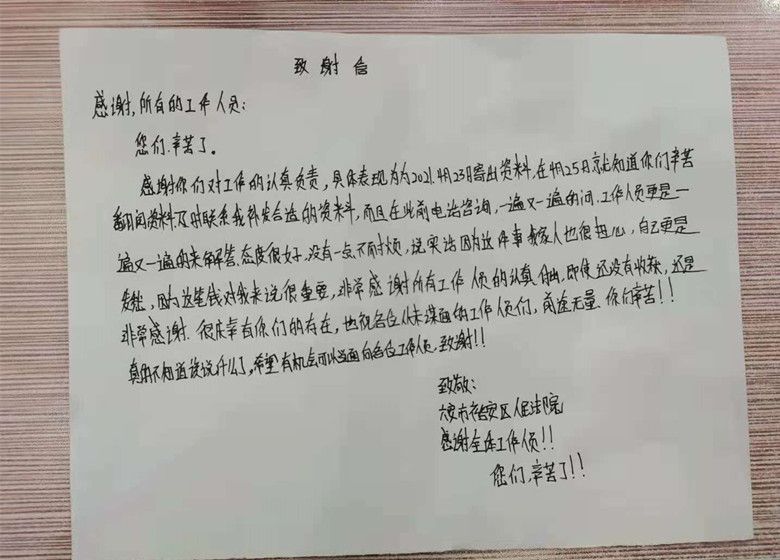 致谢信
感谢,所有的工作人员:
您们,辛苦了。
感谢你们对工作的认真负责,具体表现为为2021.4月23寄出资料,在4月25日就知道你们辛苦
翻阅资料及时联系我补发合适的资料,而且在此前电话咨询,一遍又一遍的问.工作人员更是一
遍又一遍的来解答,态度很好,没有一点不耐烦,说实话因为这件事我家人也很担心,自己更是
发愁,因为这笔钱对我来说很重要,非常感谢所有工作人员的认真付出,即使还没有收款,还是
非常感谢.很庆幸有你们的存在,也祝各位从未谋面的工作人员们,前途无量.你们辛苦!!
真的不知道该说什么了,希望有机会可以当面向各位工作人员,致谢!!
致敬:
六安市裕安区人民法院
感谢全体工作人员!!
您们,辛苦了!!